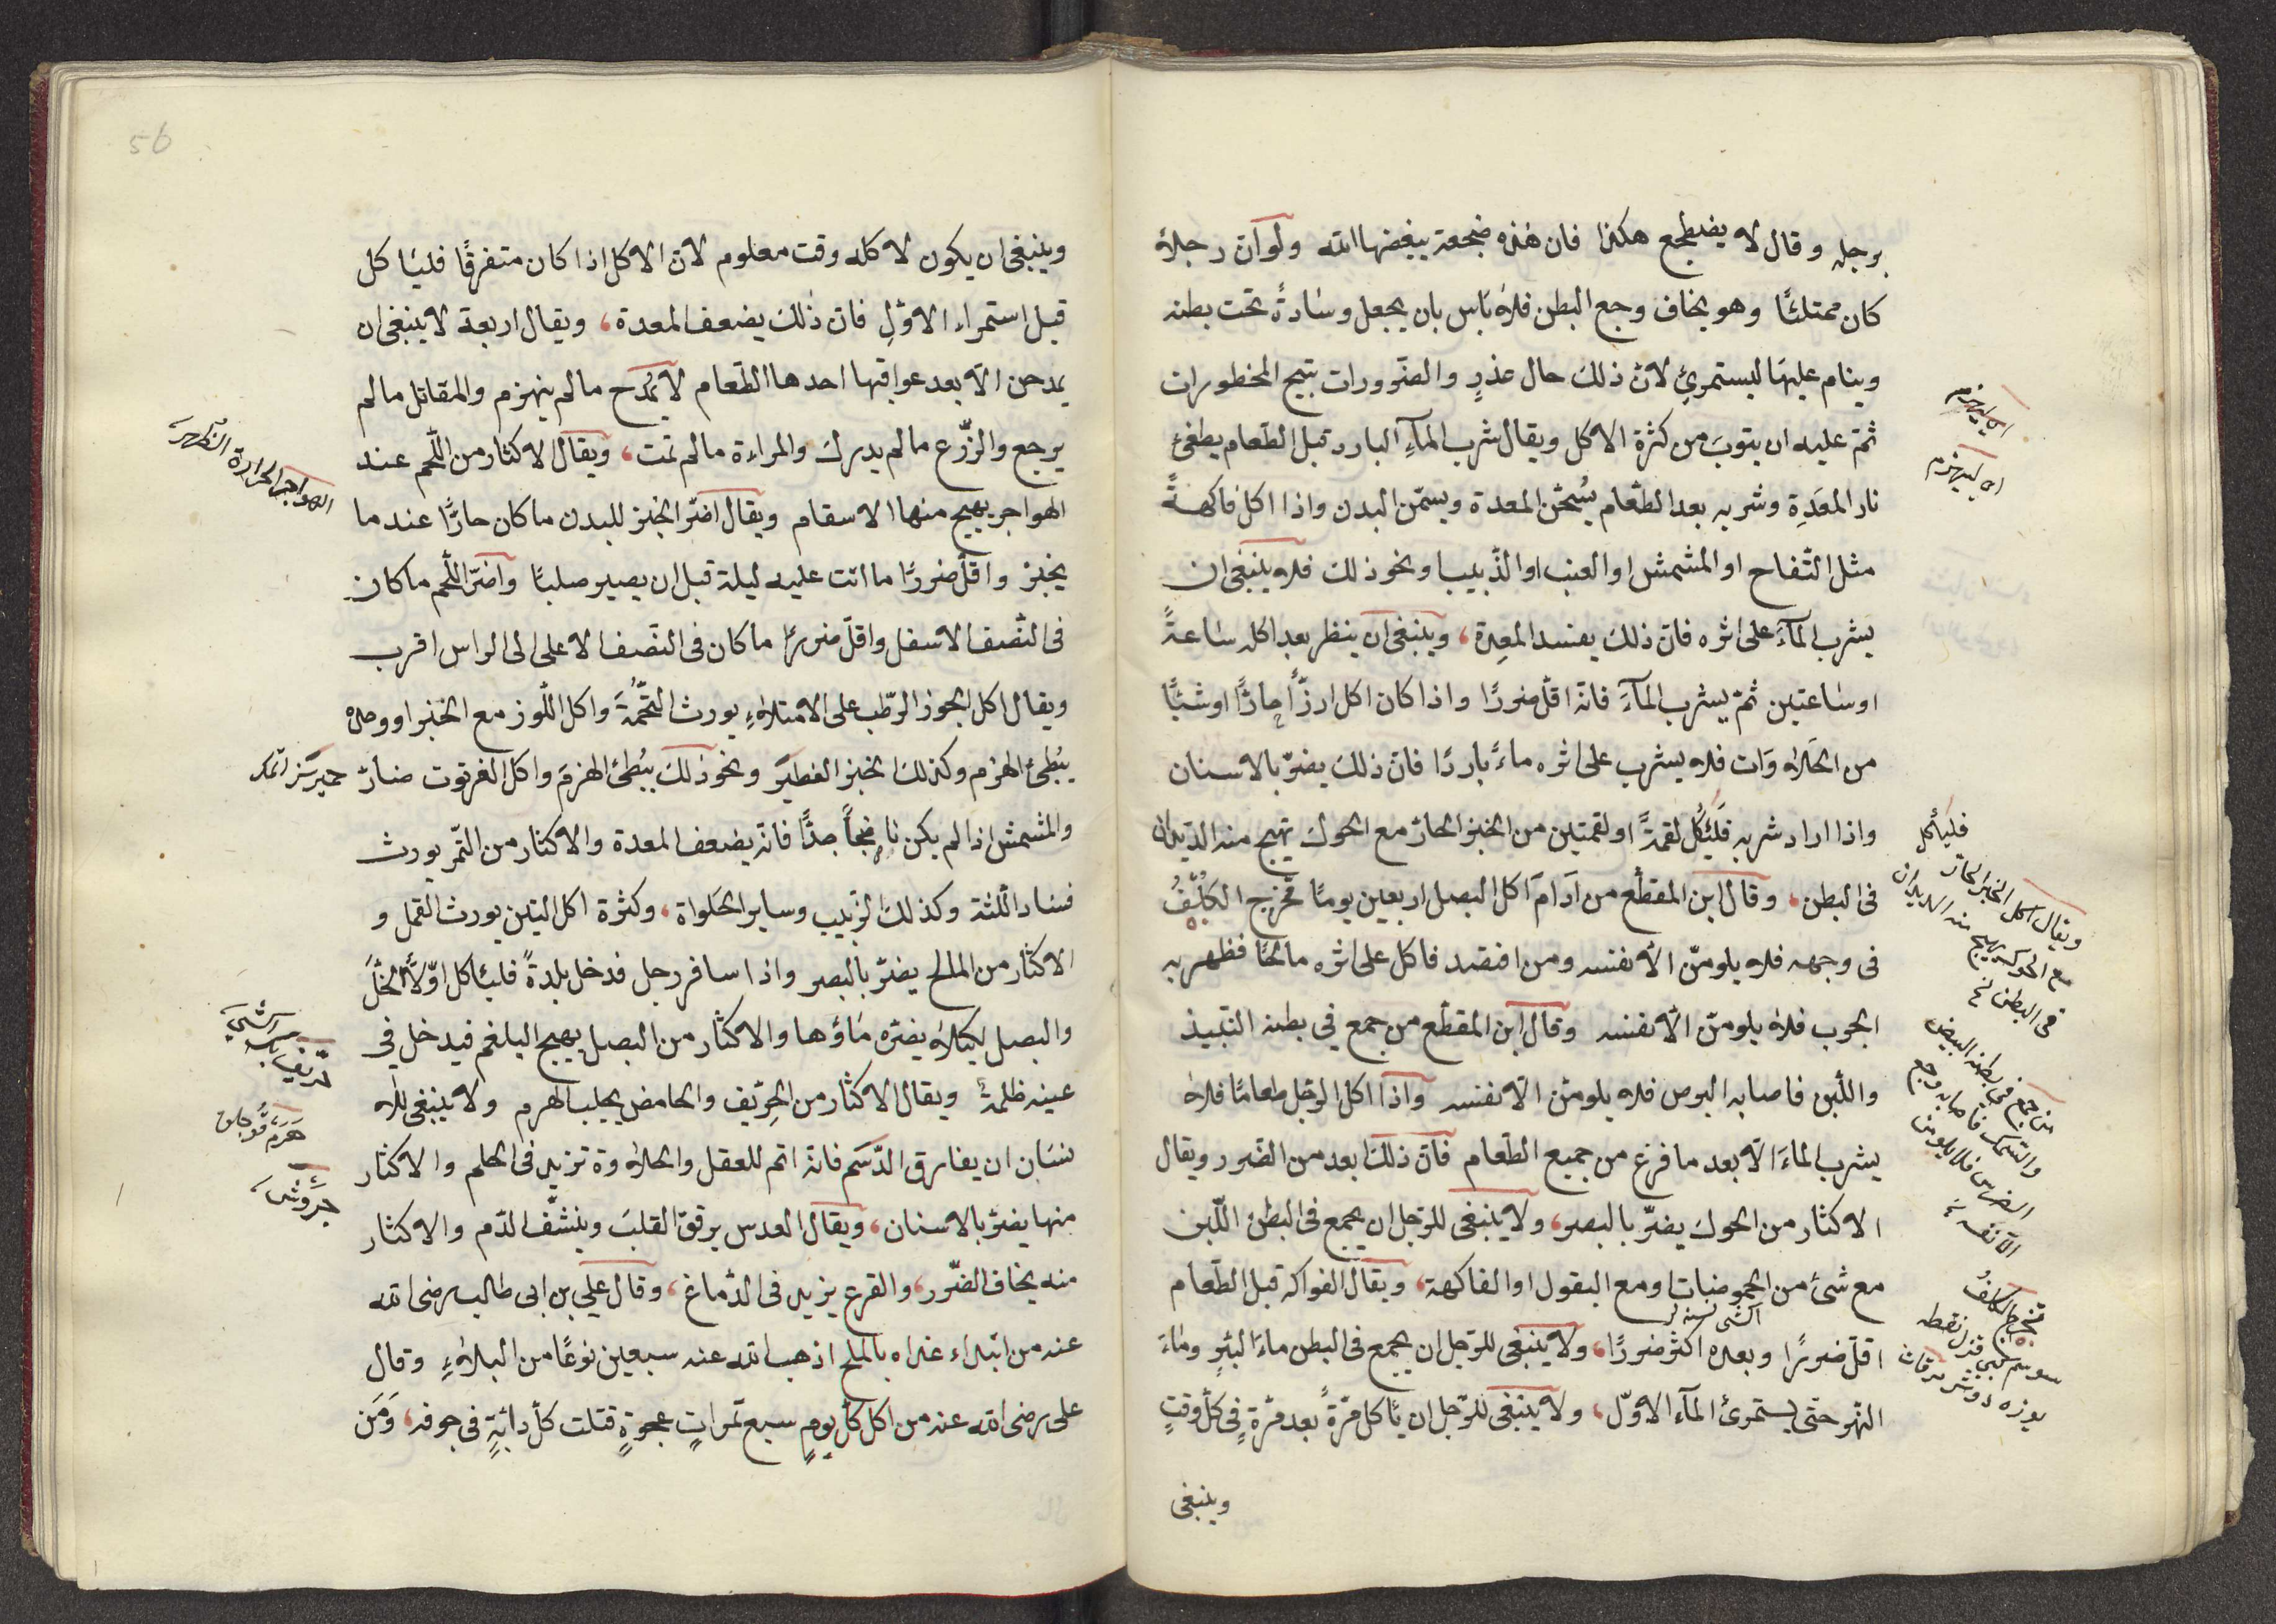 برجله وقال لا يضطجع هكذا فان هذه ضجعة يبغضها الله ولو ان رجلا
كان ممتلئًا وهو يخاف وجع البطن فلا باس بان يجعل وسادةً تحت بطنه
وينام عليها ليستمرئ لان ذلك حال عذرٍ والضرورات تبيح المحظورات
ثم عليه ان يتوب من كثرة الاكل ويقال شرب المآءِ البارد قبل الطعام يطفئ
نار المعدِة وشربه بعد الطعام يُسخّن المعدة ويسمّن البدن واذا اكل فاكهةً
مثل التّفاح او المشمش او العنب او الذّبيب ونحو ذلك فلا ينبغى ان
يشرب المآءَ على اثره فان ذلك يفسد المعِدة، وينبغى ان ينظر بعد اكله ساعةً
او ساعتين ثم يشرب المآءَ فانه اقلّ ضررًا واذا كان اكل ارزًّا حارًّا او شيئًا
من الحَلاوَات فلا يشرب على اثره ماءً باردًا فان ذلك يضرّ بالاسنان
واذا اراد شربه فَلئَكُل لقمةً او لقمتين من الخبز الحارّ مع الحوك تهيج منه الديدان
فى البطن، وقال ابن المقطّع من ادَامَ اكل البصل اربعين يومًا تخرج الكَلَفُ
فى وجهه فلا يلومنّ الا نفسه ومن افتصد فاكل على اثره مالحًا فظهر به
الجرب فلا يلومنّ الا نفسه وقال ابن المقطّع من جمع في بطنه النبيذ
واللّبن فاصابه البرص فلا يلومنّ الا نفسه واذا اكل الرّجل طعامًا فلا
يشرب الماءَ الا بعد ما فرغ من جميع الطّعام فان ذلك ابعد من الضرر ويقال
الاكثار من الحوك يضرّ بالبصر، ولا ينبغى للرّجل ان يجمع فى البطن اللّبن
مع شئ من الحموضيات او مع البقول او الفاكهة، ويقال الفواكه قبل الطّعام
اقلّ ضررًا وبعده اكثر ضررًا، ولا ينبغى للرّجل ان يجمع فى البطن ماءَ البئرِ وماءَ
النّهر حتى يستمرئ المآء الاوّل، ولا ينبغى للرّجل ان ياكل مرّةً بعد مرّةٍ فى كل وقتٍ
وينبغى
اى ليهزم
فليأكل
ويقال اكل الخبز الحارّ
مع الحوك يهيج منه الديدان
فى البطن نخ
من جمع فى بطنه البيض
والسّمك فاصابه وجع
الضرس فلا يلومنّ
الا نفسه
تخرج الكلفُ
وينبغى ان يكون لاكله وقت معلوم لان الاكل اذا كان متفرقًا فلياكل
قبل استمراء الاوّلِ فان ذلك يضعف المعدة، ويقال اربعة لا ينبغى ان
يمدحن الا بعد عواقبها احدها الطّعام لا يُمدح ما لم ينهزم والمقاتل ما لم
يرجع والزّرع ما لم يدرك والمراءة ما لم تمت، ويقال لاكثار من اللّحم عند
الهواجر يهيج منها الاسقام ويقال اضرّ الخبز للبدن ما كان حارًّا عند ما
يخبز واقلّ ضررًا ما اتت عليه ليلة قبل ان يصير صلبًا واضرّ اللّحم ما كان
فى النّصف الاسفل واقلّ ضررًا ما كان فى النّصف الاعلى الى الراس اقرب
ويقال اكل الجوز الرّطب على الامتلاءِ يورث التُّخَمَةَ واكل اللّوز مع الخبز او وحده
يُبْطئ الهزم وكذلك الخبز الفطير ونحو ذلك يُبْطئ الهزمَ واكل الفرتوت ضارّ
والمشمش اذا لم يكن ناضِجاً جدًّا فانه يضعف المعدة والاكثار من التّمر يورث
فساد اللّثة وكذلك الزّبيب وساير الحَلواة، وكثرة اكل التين يورث القمل و
الاكثار من المالح يضرّ بالبصر واذا سافر رجل فدخل بلدةً فلياكل اوّلاً الخلَّ
والبصل لكيلا يضرّه ماؤها والاكثار من البصل يهيج البلغم فيدخل فى
عينه ظلمة ويقال الاكثار من الحِرّيف والحامض يجلب الهرم ولا ينبغى للا
نسان ان يفارق الدّسَم فانه اتم للعقل والحلاوة تزيد فى الحلم والاكثار
منها يضرّ بالاسنان، ويقال العدس يرقق القلبَ وينشّف الدّم والاكثار
منه يخاف الضّرر، والقرع يزيد فى الدّماغ، وقال علي بن ابى طالب رضى الله
عنه من ابتداء غداه بالملح اذهب الله عنه سبعين نوعًا من البلاءِ وقال
على رضى الله عنه من اكل كل يومٍ سبع تمراتٍ عجوةٍ قتلت كل دابّةٍ فى جوفه، وَمَن
الهواجر الحرارة الظهر
هَرَمْ
56